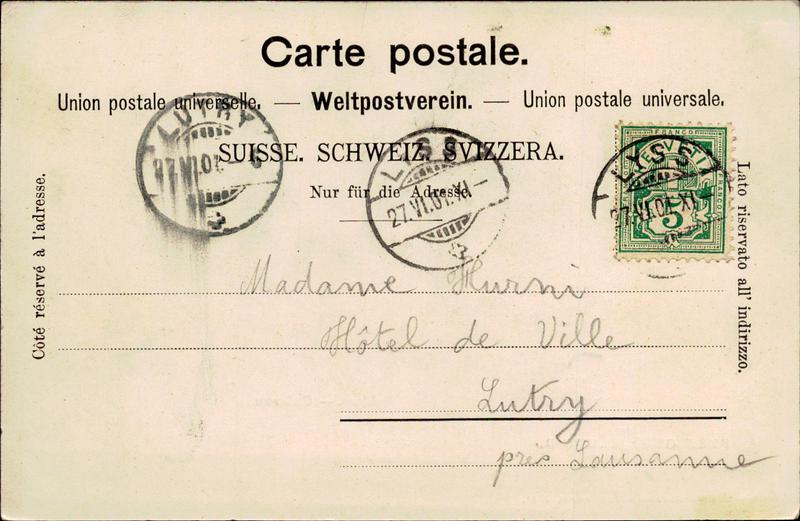 Carte postale.
Union postale universelle. — Weltpostverein. — Union postale universale.
SUISSE. SCHWEIZ. SVIZZERA.
Nur für die Adresse.
Côté réservé à l'adresse.
Lato riservato all' indirizzo.
LUTRY
27.VI.01
LYSS
27.VI.01.XI–
FRANCO
HELVETIA
FRANCO
5
LYSS
27.VI.01.XI
Madame Hurni
Hôtel de Ville
Lutry
près Lausanne